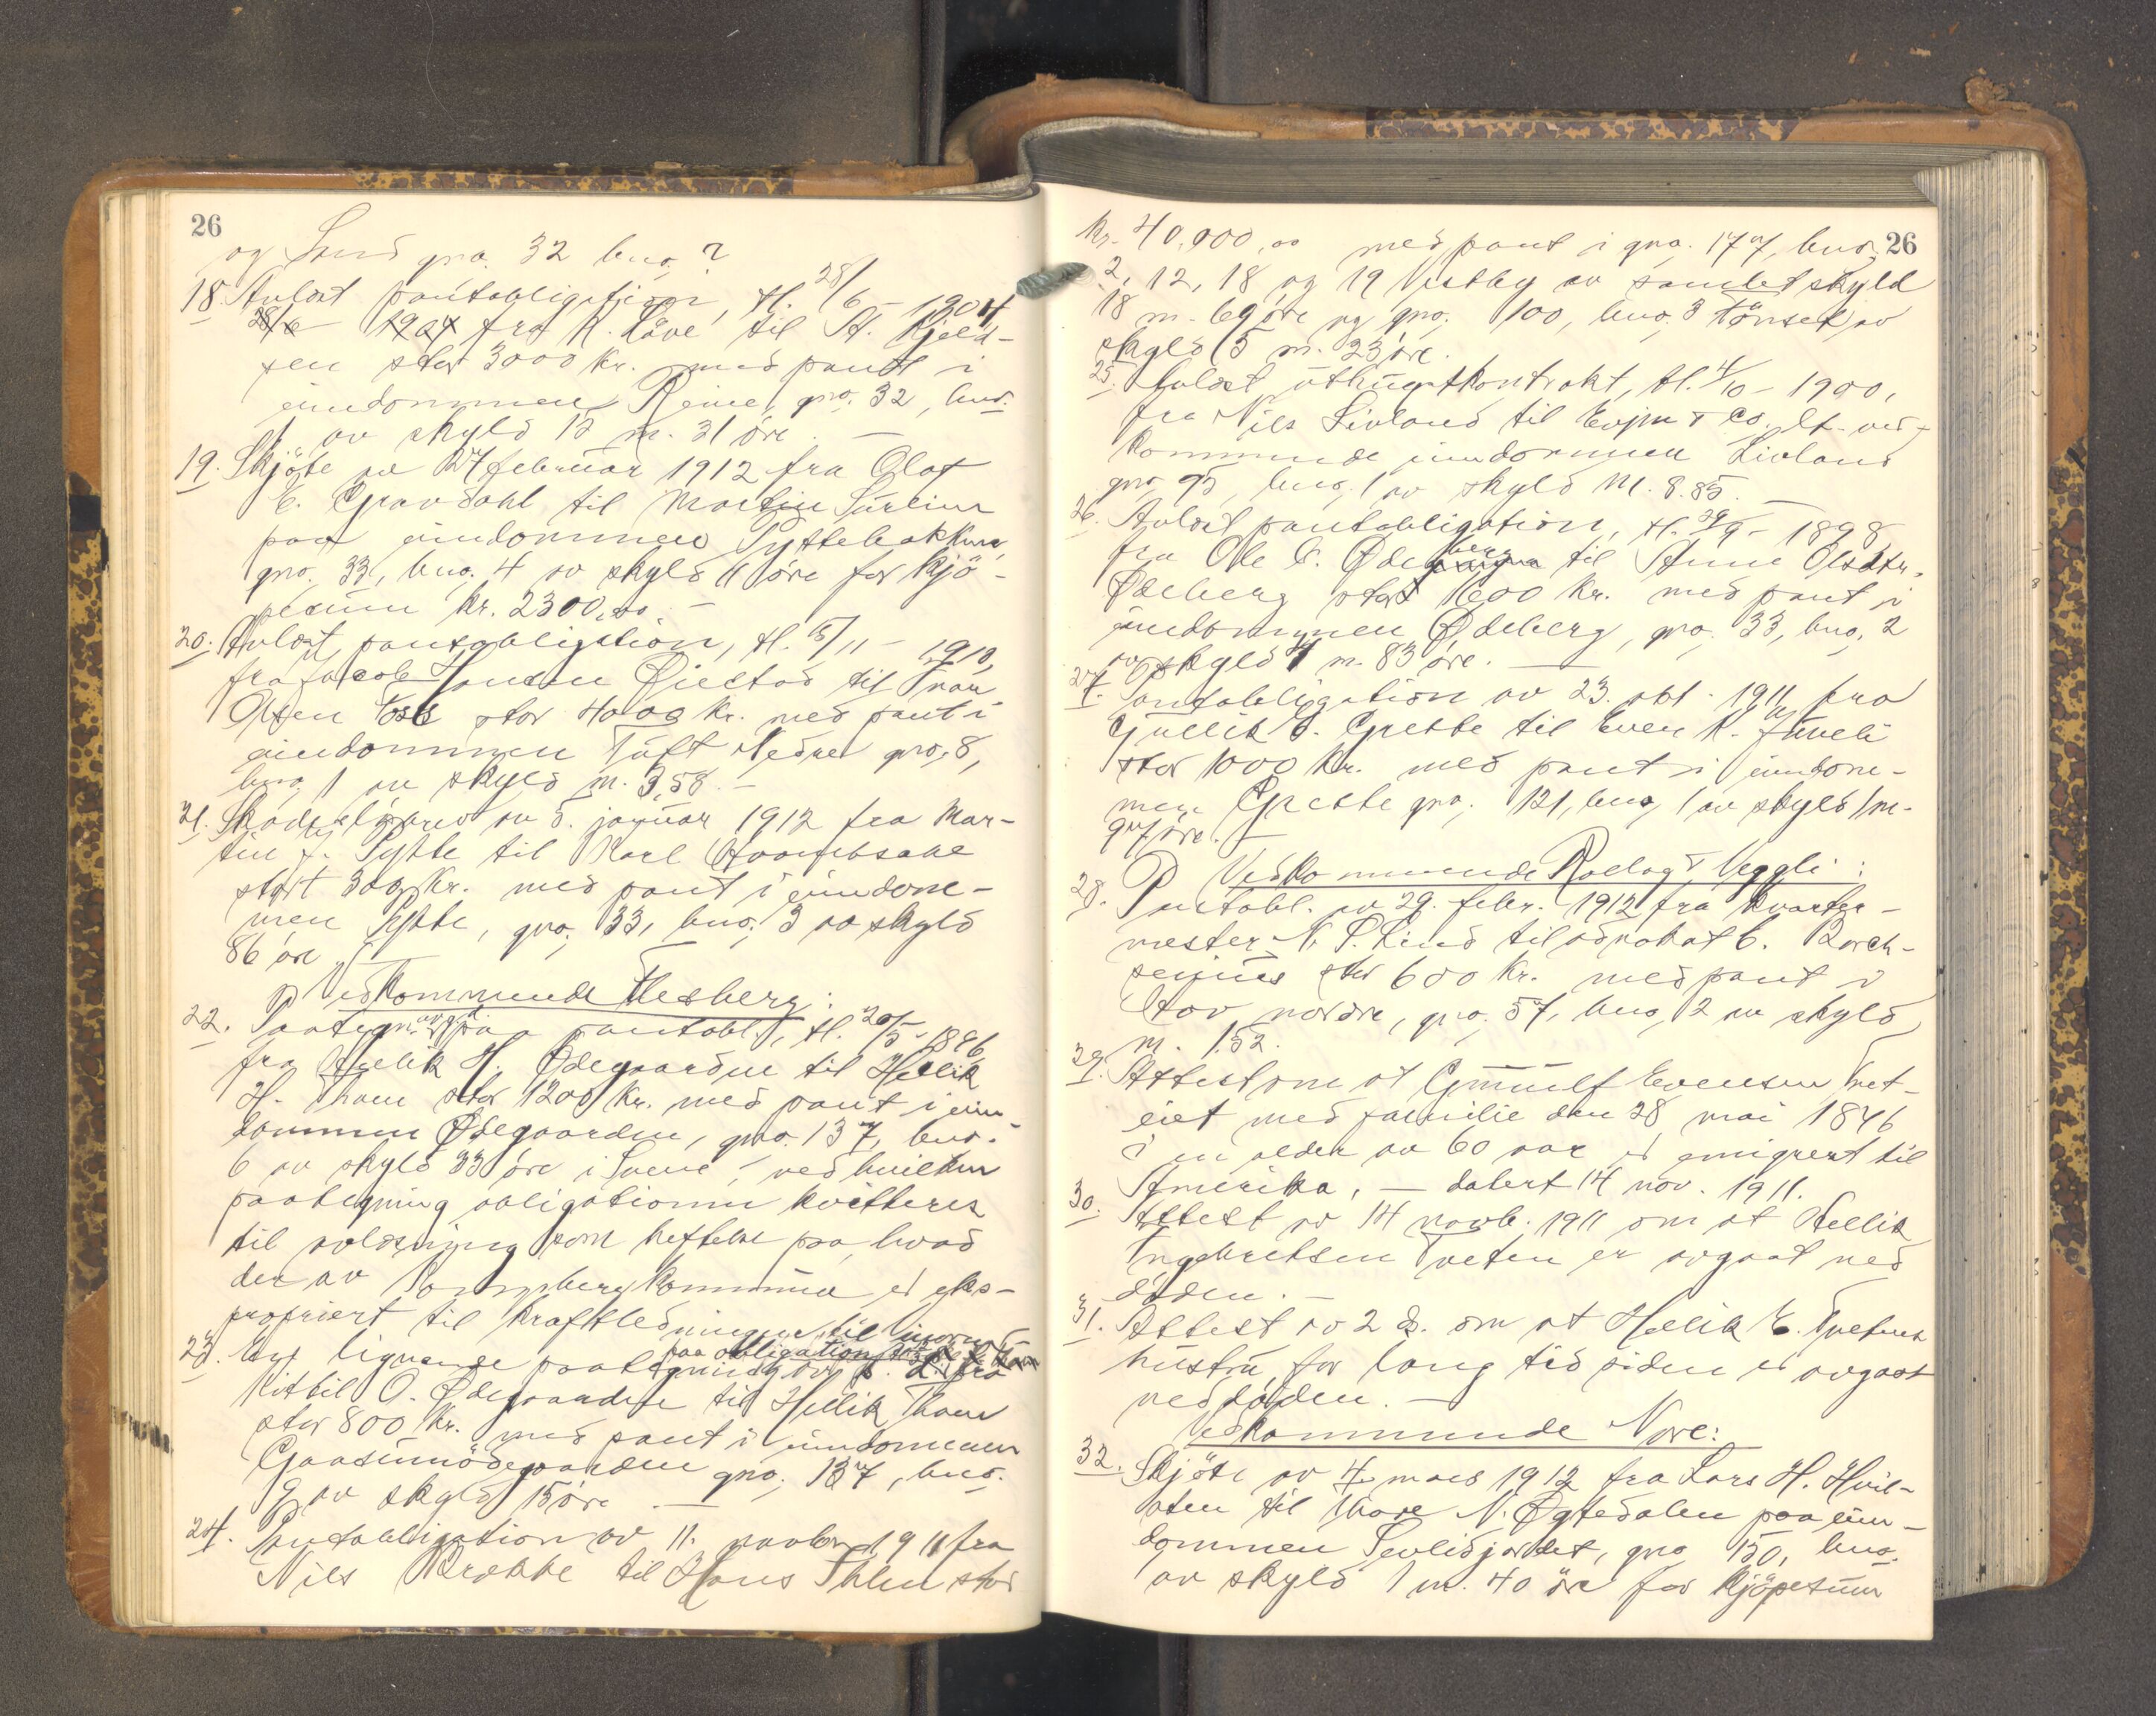 26
og Lund gno. 32 bno. ?
18. Avlæst pantobligation, tl. 28/6 - 1904
28/6 1904 fra K. Løve til A. Kjeld-
sen stor 3000 kr. med pant i
eiendommen Reine, gno. 32, bno.
1 av skyld 12 m. 31 öre. —
19. Skjöte av 27 februar 1912 fra Olaf
C. Gravdahl til Martin
paa eiendommen Pyttebakken,
gno. 33, bno. 4 av skyld 11 öre for kjö-
pesum kr. 2300,00 —
20. Avlæst pantobligation, tl. 15/11 - 1910,
fra Jacob Hansen Øiestad til
Olsen Foss stor 4000 kr. med pant i
eiendommen Tuft Nedre gno. 8,
bno. 1 av skyld m. 3,58. —
21. Skadeslösbrev av 5. januar 1912 fra Mar-
tin J. Pytte til Karl
stort 300 kr. med pant i eiendom-
men Pytte, gno. 33, bno. 3 av skyld
86 öre. —
Vedkommende Flesberg:
22. Paategning paa pantobl., tl. 20/5 - 1896
fra Hellik H. Ødegaarden til Hellik
H. Thom stor 1200 kr. med pant i eien-
dommen Ødegaarden, gno. 137, bno.
6 av skyld 33 öre i Svene, ved hvilken
paategning obligationen kvitteres
til avlæsning som heftelse paa hvad
der av Kongsberg kommune er eks-
propriert til kraftledningen til
23. Lignende paategning paa obligation
Kittil O. Ødegaarden til Hellik Thom
stor 800 kr. med pant i eiendommen
Gaasunnödegaarden gno. 137, bno.
9 av skyld 15 öre. —
24. Pantobligation av 11. novbr. 1911 fra
Nils Brokke til Hans Ihlen stor
26
kr. 40.000,00 med pant i gno. 177, bno.
2, 12, 18 og 19 Vestby av samlet skyld
18 m. 69 öre og gno. 100, bno. 3 av
skyld 5 m. 23 öre.
25. Avlæst uthugstkontrakt, tl. 4/10 - 1900,
fra Nils Livland til & Co. ved-
kommende eiendommen Livland
gno. 95, bno. 1 av skyld M. 8.85. —
26. Avlæst pantobligation, tl. 29/9 - 1898
fra Ole C. Ødeberg til Anne Olsdtr.
Ødeberg stor 1600 kr. med pant i
eiendommen Ødeberg, gno. 33, bno. 2
av skyld 4 m. 83 öre. —
27. Pantobligation av 23. okt. 1911 fra
Gullik G. Grette til Even K. Juveli
stor 1000 kr. med pant i eiendom-
men Grette gno. 121, bno. 1 av skyld 1 m.
97 öre. —
Vedkommende Rollag & Veggli:
28. Pantobl. av 29. febr. 1912 fra kvarter-
mester N. P. Lind til advokat C. Borch-
senius stor 600 kr. med pant i
nordre, gno. 57, bno. 2 av skyld
m. 1.52.
29. Attest om at Gunulf Evensen Tvet-
eiet med familie den 28 mai 1846
i en alder av 60 aar er emigrert til
Amerika, — datert 14 nov. 1911.
30. Attest av 14 novb. 1911 om at Hellik
Ingebretsen Tveten er avgaat ved
döden. —
31. Attest av 2 ds. om at Hellik E. Tvetens
hustru for lang tid siden er avgaat
ved döden. —
Vedkommende Nore:
32. Skjöte av 4 mars 1912 fra Lars H.
til Thore N. Øgtedalen paa eien-
dommen gno. 150, bno.
av skyld 1 m. 40 öre for kjöpesum